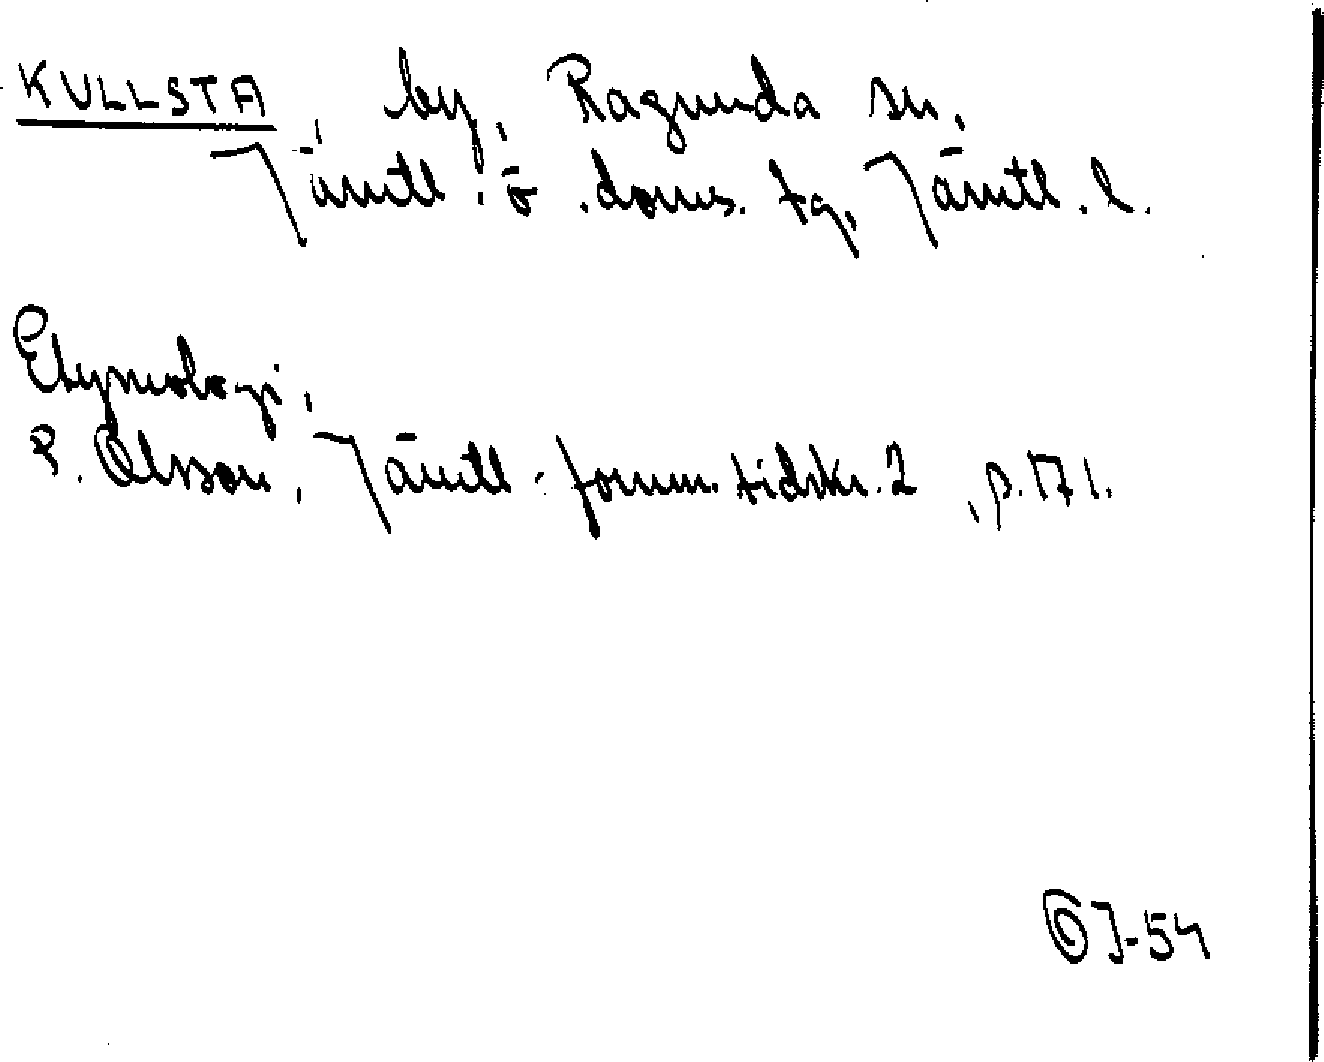 KULLSTA, by, Ragunda sn,
Jämtl. ö. doms. tg, Jämtl. l.
Etymologi,
P. Olsson, Jämtl. fornm. tidskr. 2, p. 171.
J-54